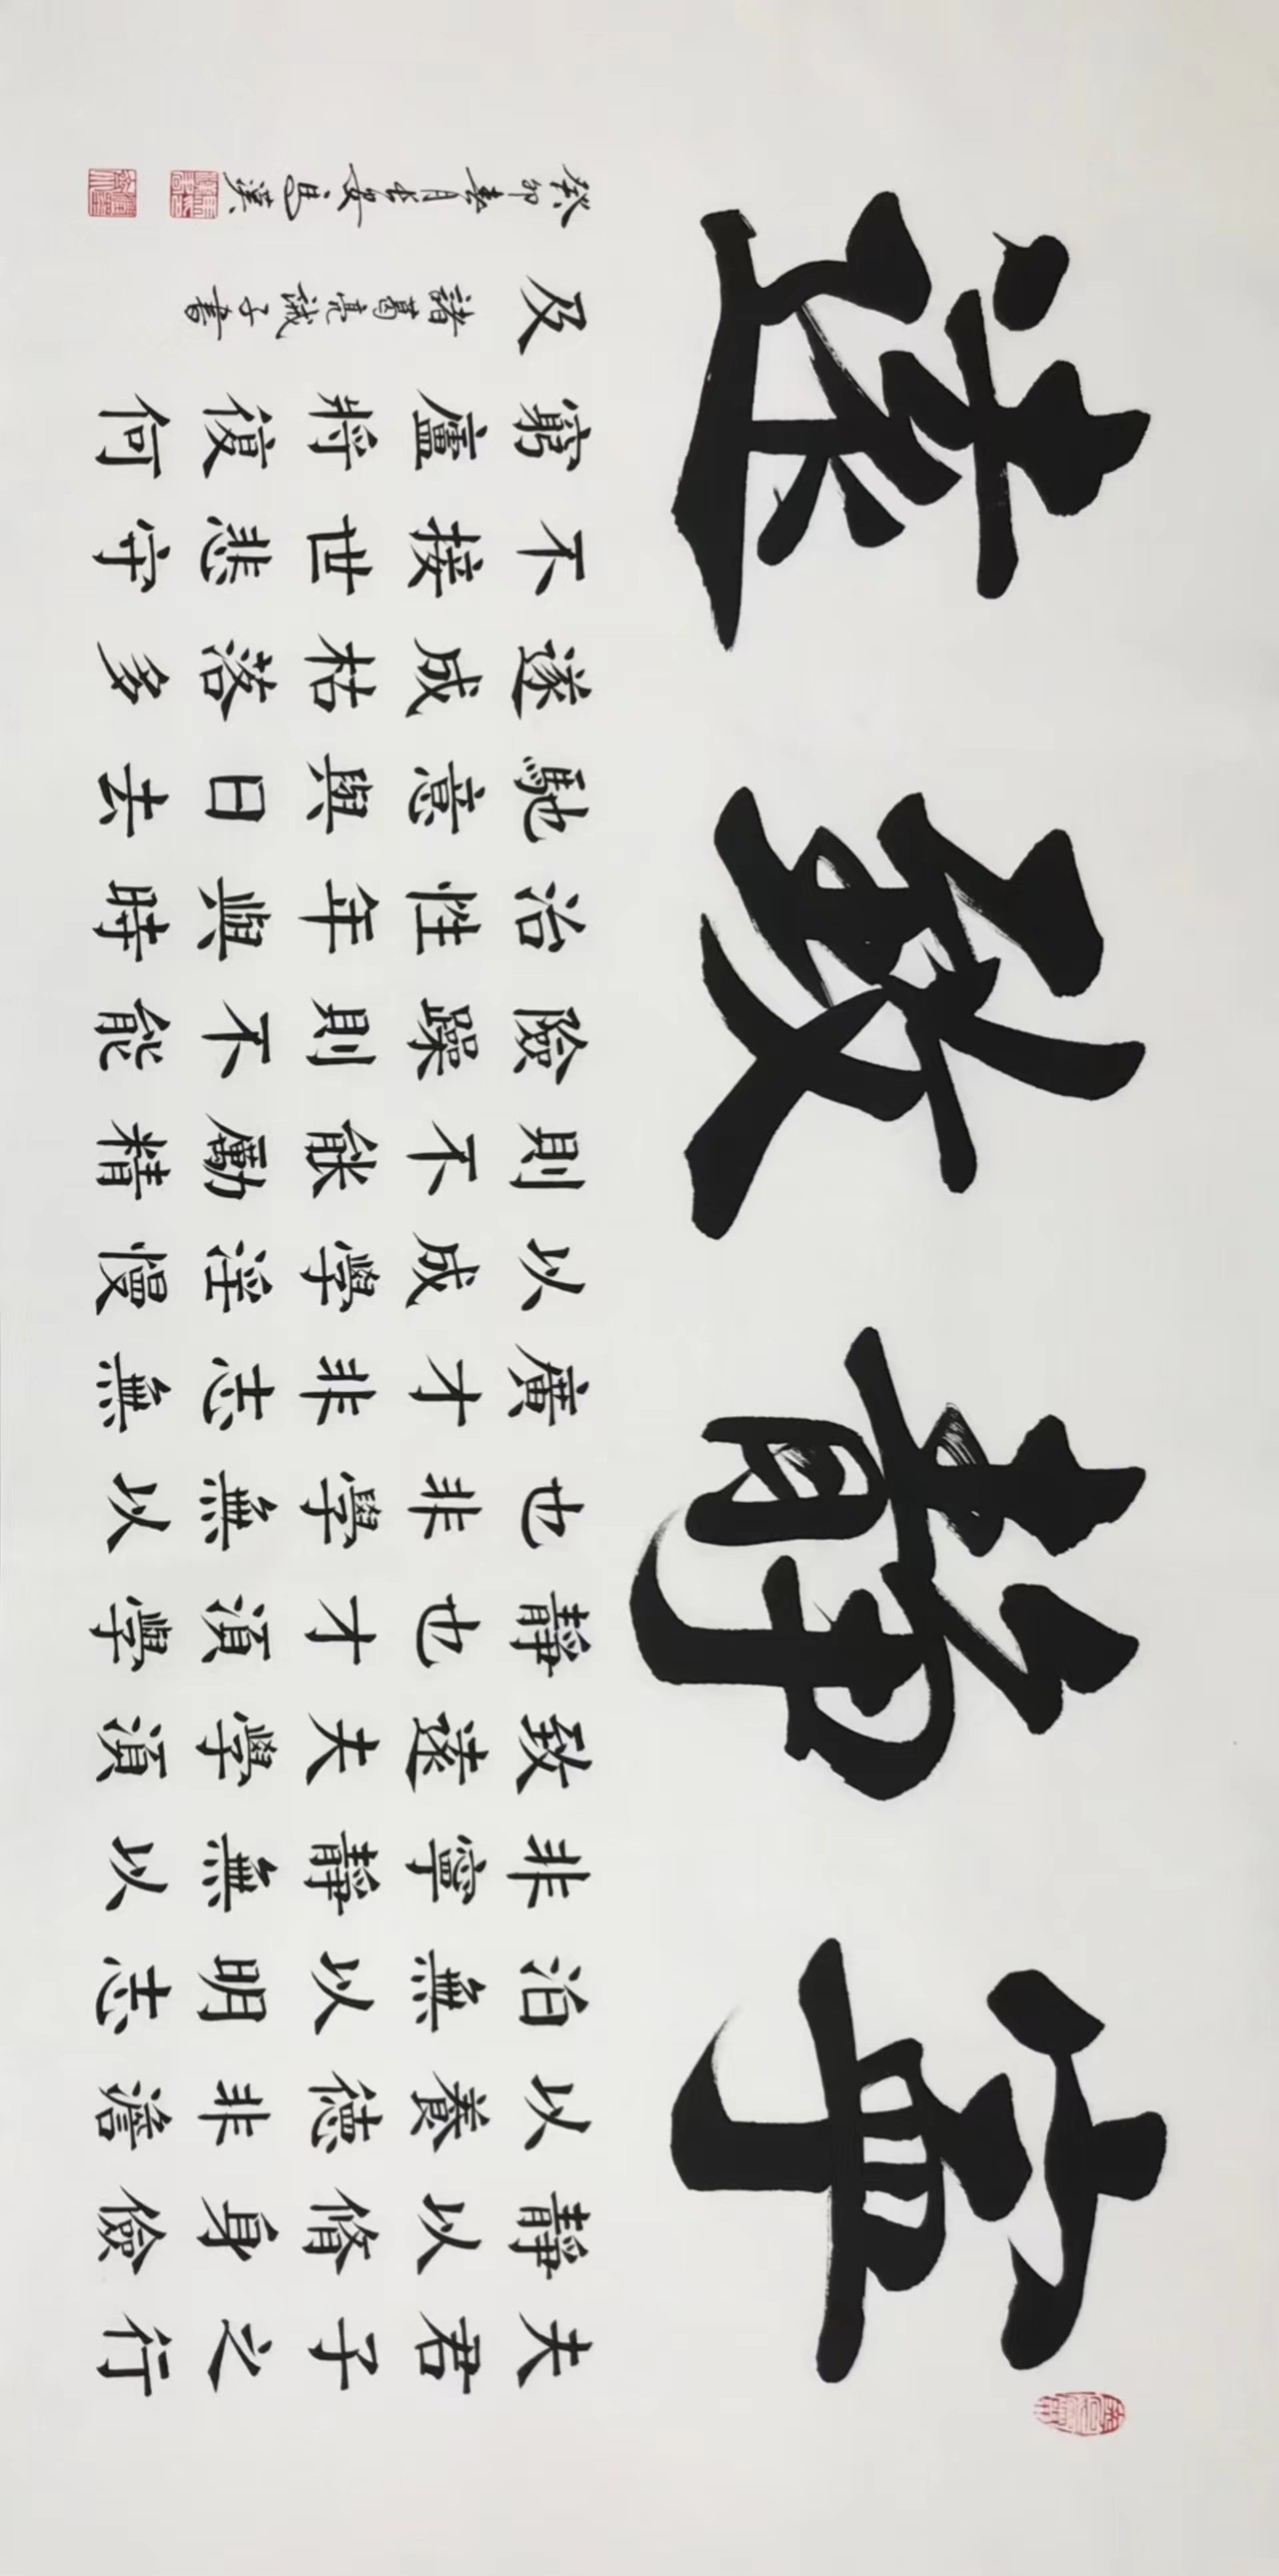 寧靜致遠
夫君子之行
靜以脩身儉
以養德非澹
泊無以明志
非寧靜無以
致遠夫學須
靜也才須學
也非學無以
廣才非志無
以成學淫慢
則不能勵精
險躁則不能
治性年與時
馳意與日去
遂成枯落多
不接世悲守
窮廬將復何
及 諸葛亮誡子書
癸卯春月長安馬漢